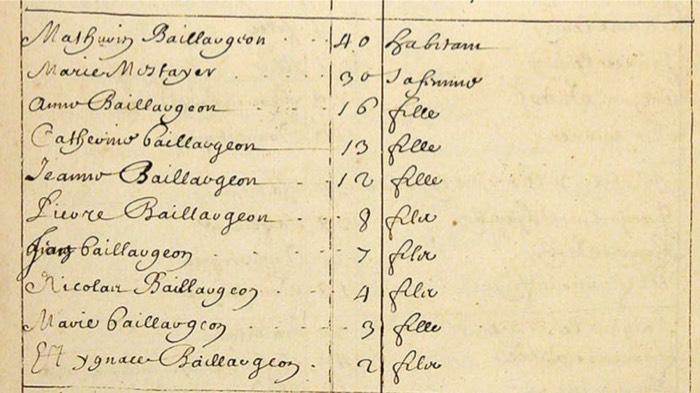 Mathurin Baillargeon 40 habitant
Marie Mestayer 30 Sa femme
Anne Baillargeon 16 fille
Catherine baillargeon 13 fille
Jeanne Baillargeon 12 fille
Pierre Baillargeon 8 filz
baillargeon 7 filz
Nicolas Baillargeon 4 filz
Marie baillargeon 3 fille
Et ygnace Baillargeon 2 filz